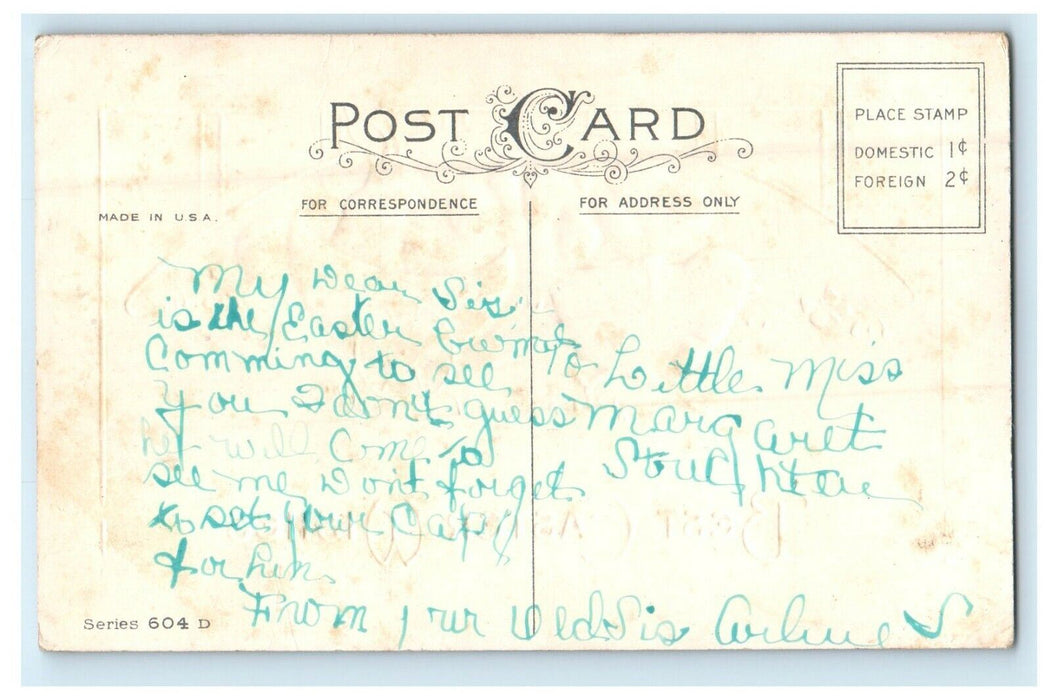 POST CARD
PLACE STAMP
DOMESTIC 1¢
FOREIGN 2¢
FOR CORRESPONDENCE
FOR ADDRESS ONLY
MADE IN U.S.A.
My Dear Sis
is the Easter
Comming to see
you I don't guess
he will Come to
see me Dont forget
to set your Cap
for him
From your Sis
S
To Little Miss
Margaret
Series 604 D